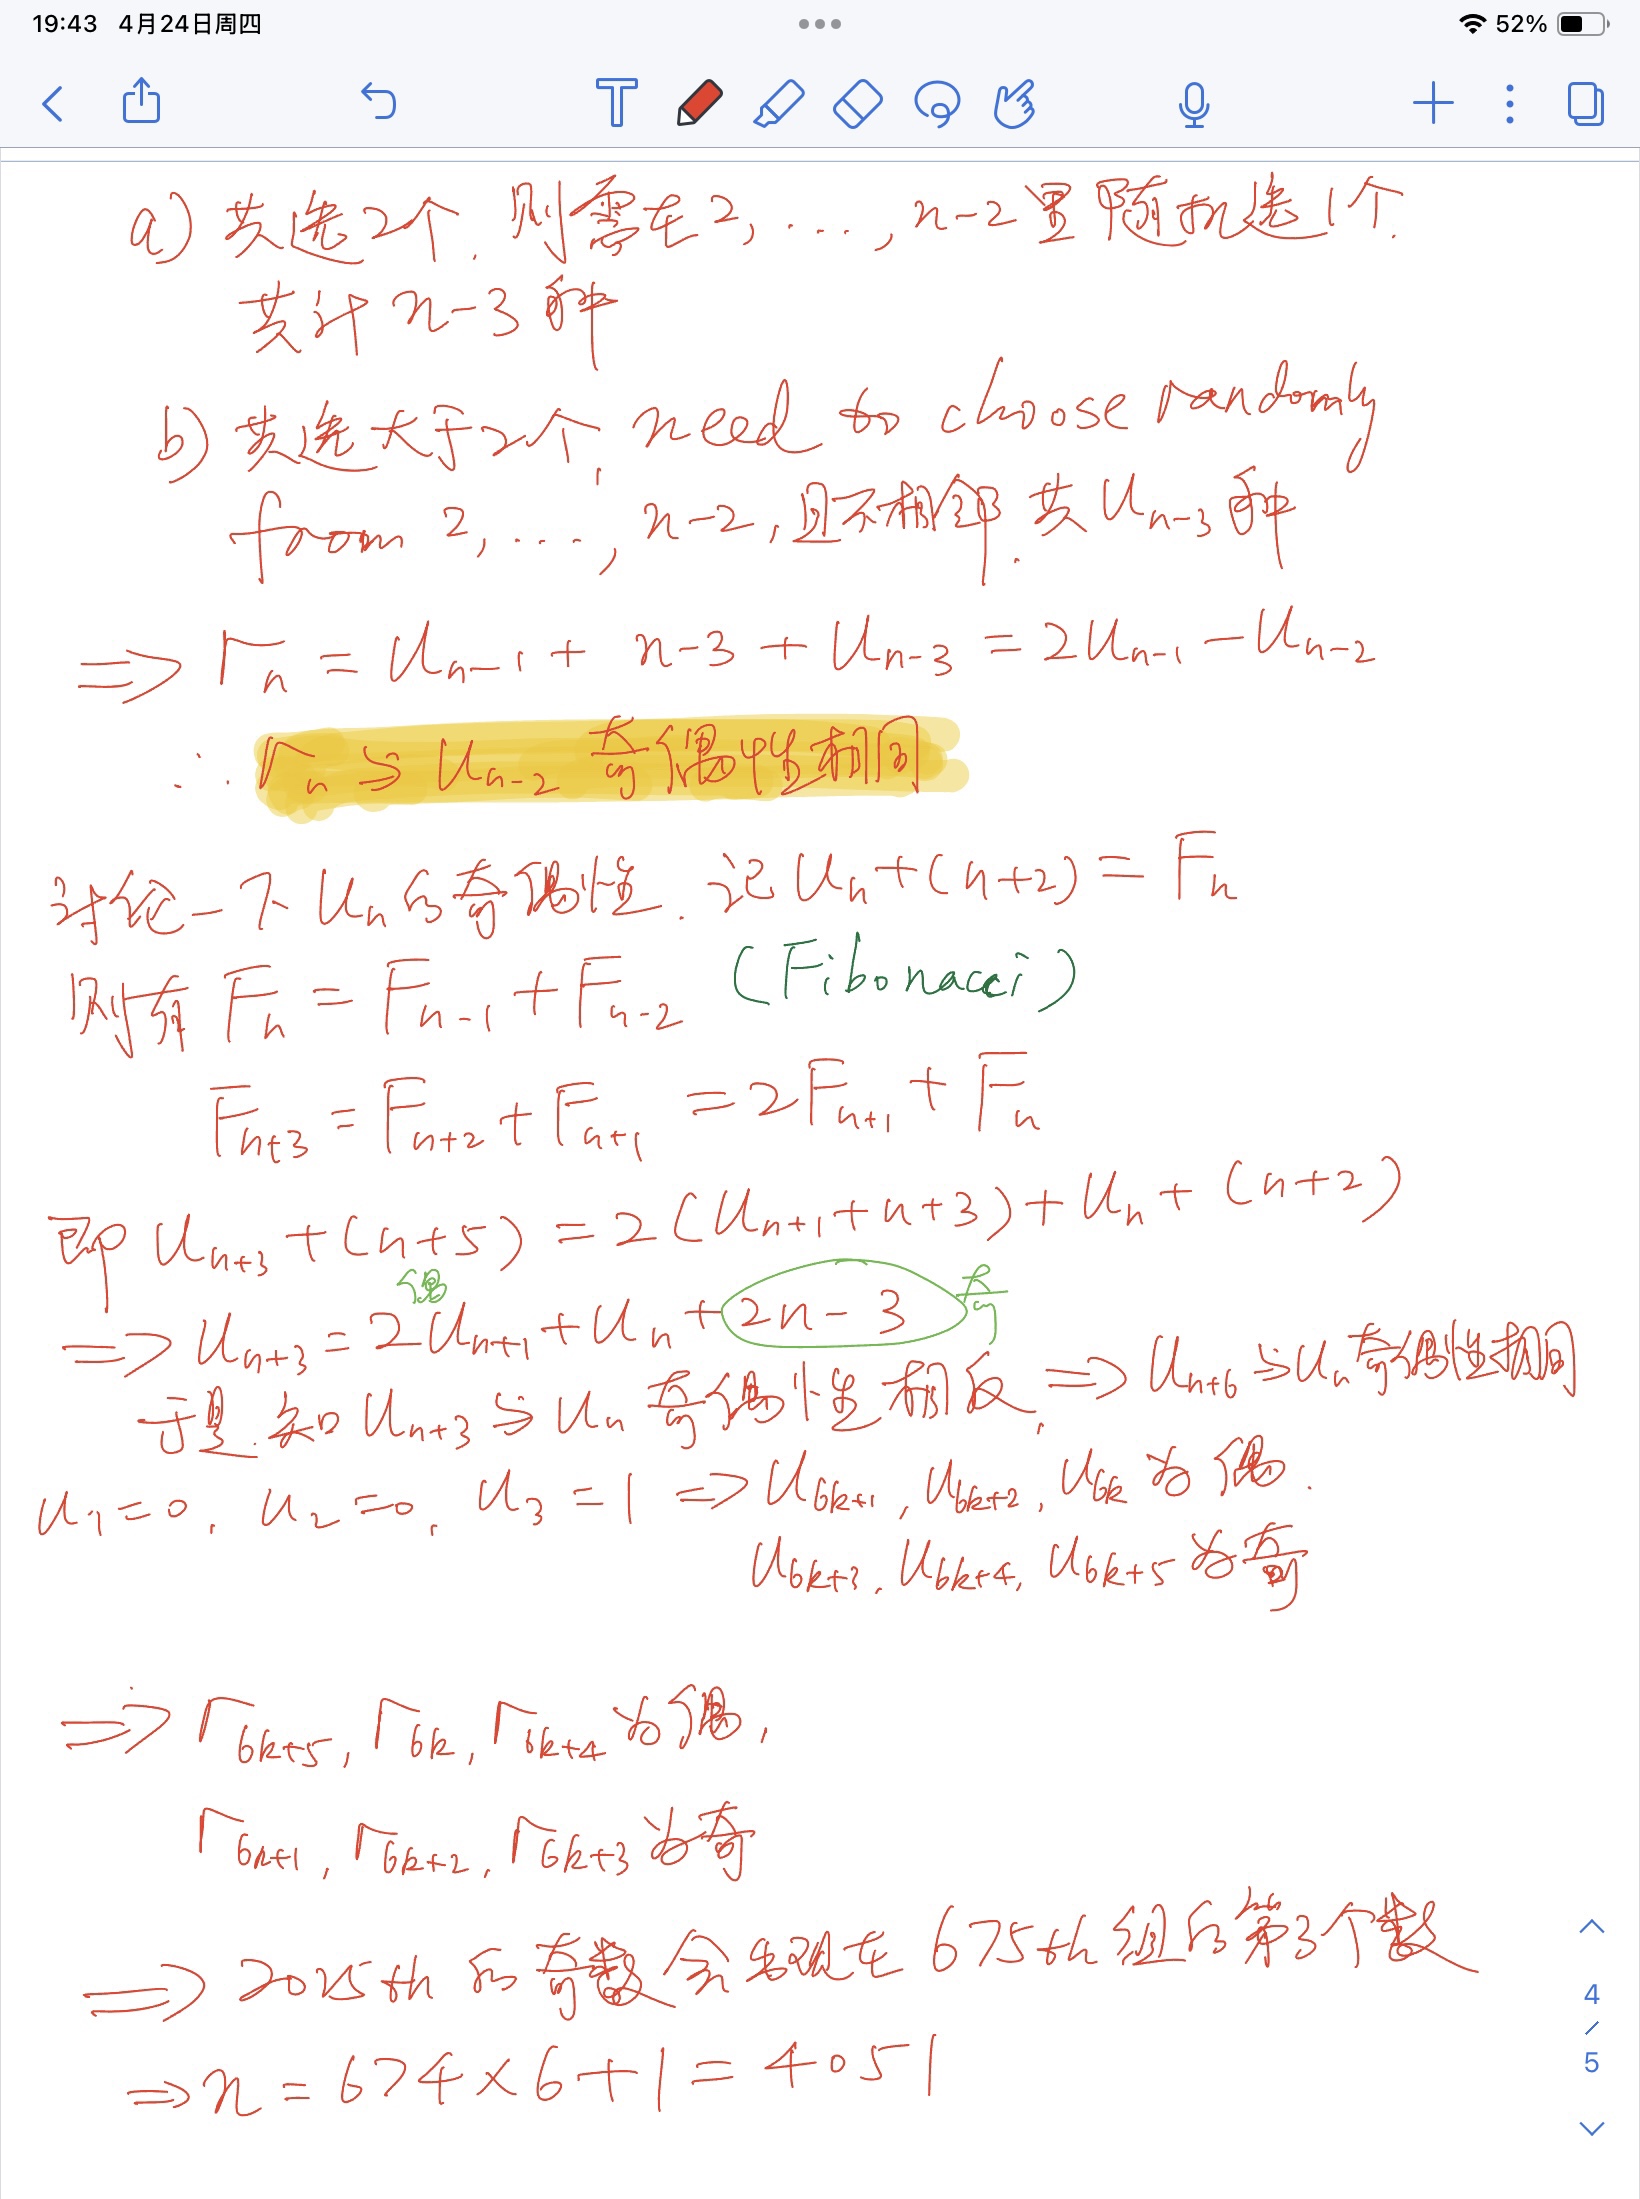 19:43 4月24日周四
52%
a) 共选2个, 则需在2, ..., n-2里随机选1个.
共计 n-3 种
b) 共选大于2个, need to choose randomly
from 2, ..., n-2, 且不相邻. 共 U_{n-3} 种
⇒ r_n = U_{n-1} + n-3 + U_{n-3} = 2U_{n-1} - U_{n-2}
∴ r_n 与 U_{n-2} 奇偶性相同
讨论一下 U_n 的奇偶性. 记 U_n + (n+2) = F_n
则有 F_n = F_{n-1} + F_{n-2} (Fibonacci)
F_{n+3} = F_{n+2} + F_{n+1} = 2F_{n+1} + F_n
即 U_{n+3} + (n+5) = 2(U_{n+1} + n+3) + U_n + (n+2)
偶 奇
⇒ U_{n+3} = 2U_{n+1} + U_n + 2n - 3
于是. 知 U_{n+3} 与 U_n 奇偶性相反, ⇒ U_{n+6} 与 U_n 奇偶性相同
U_1 = 0, U_2 = 0, U_3 = 1 ⇒ U_{6k+1}, U_{6k+2}, U_{6k} 为偶.
U_{6k+3}, U_{6k+4}, U_{6k+5} 为奇
⇒ r_{6k+5}, r_{6k}, r_{6k+4} 为偶,
r_{6k+1}, r_{6k+2}, r_{6k+3} 为奇
⇒ 2025th 的奇数会出现在 675th 组的第3个数
⇒ n = 674 × 6 + 1 = 4051
4
/
5